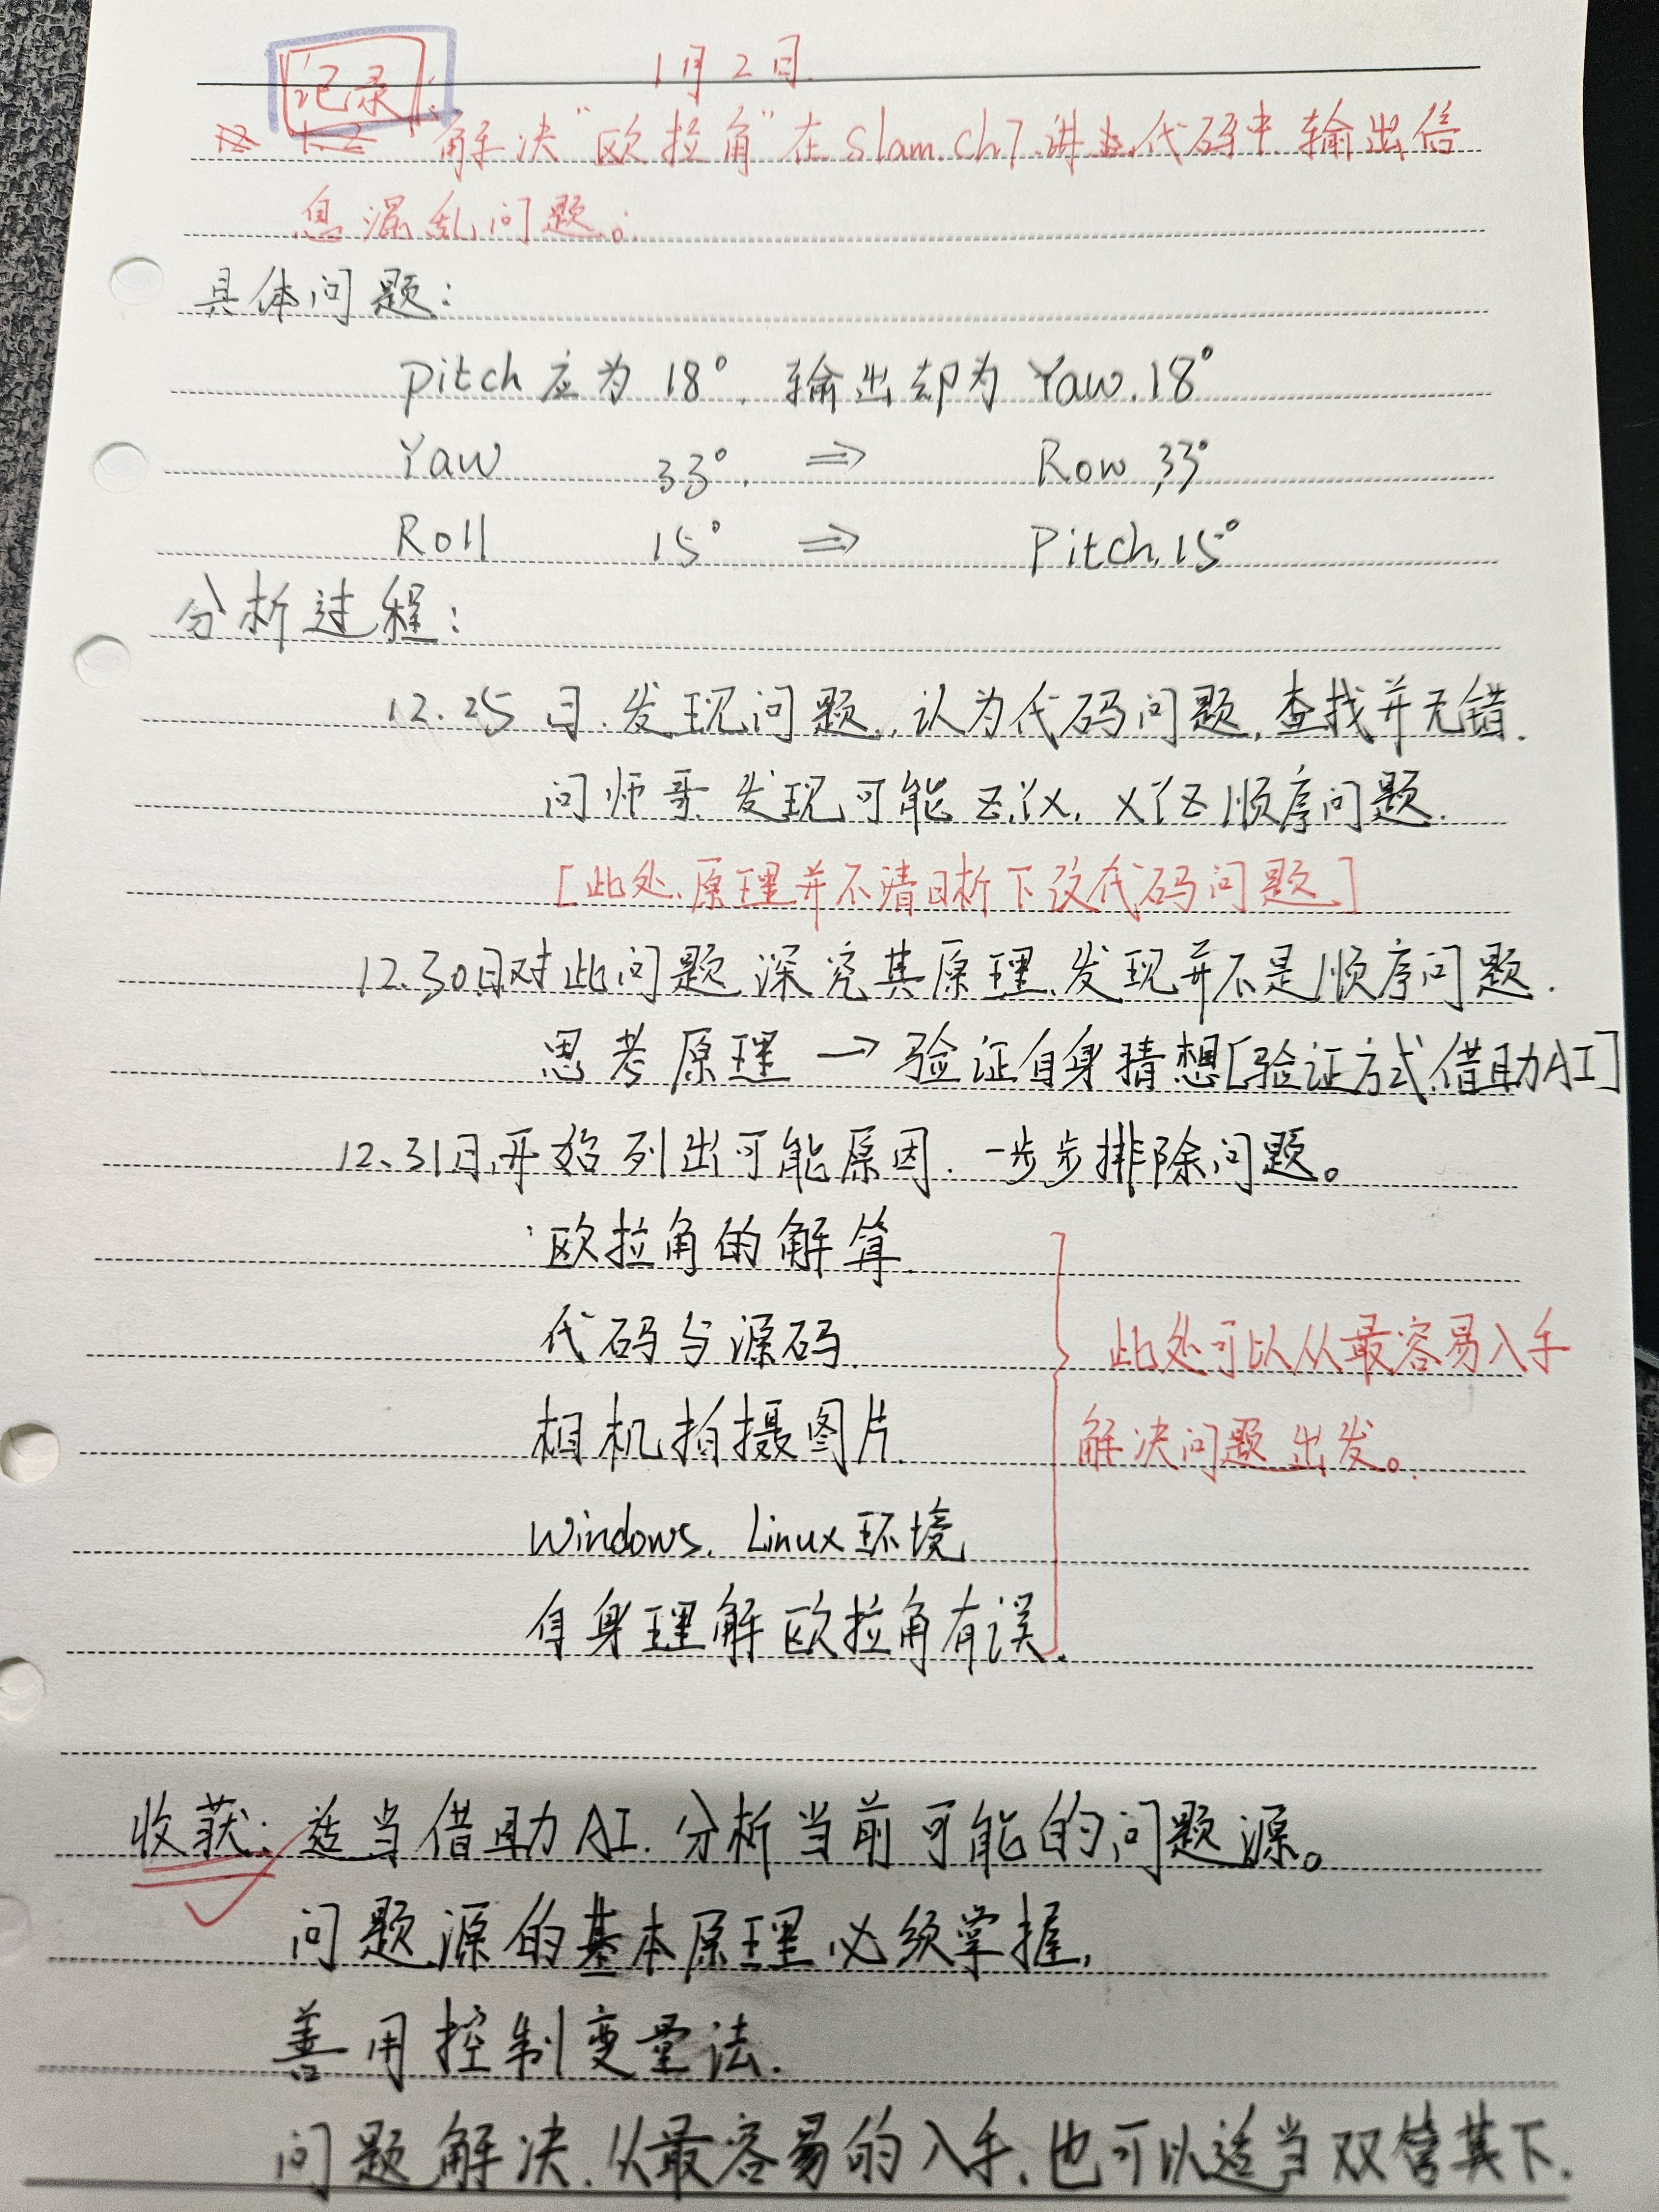 1月2日.
记录:
解决"欧拉角"在slam.ch7.讲.代码中.输出信
息混乱问题。:
具体问题:
Pitch应为 18°. 输出却为 Yaw.18°
Yaw 33°. ⇒ Row 33°
Roll 15° ⇒ Pitch.15°
分析过程:
12.25日.发现问题.,认为代码问题,查找并无错.
问师哥.发现可能 Z.YX, XYZ顺序问题.
[此处.原理并不清晰下改代码问题]
12.30日对此问题.深究其原理.发现并不是顺序问题.
思考原理→验证自身猜想[验证方式.借助AI]
12.31日.开始列出可能原因.一步步排除问题。
欧拉角的解算.
代码与源码.
此处可以从最容易入手
相机拍摄图片.
解决问题出发。
Windows. Linux环境
自身理解欧拉角有误.
收获:适当借助AI.分析当前可能的问题源。
问题源的基本原理必须掌握,
善用控制变量法.
问题解决.从最容易的入手.也可以适当双管其下.